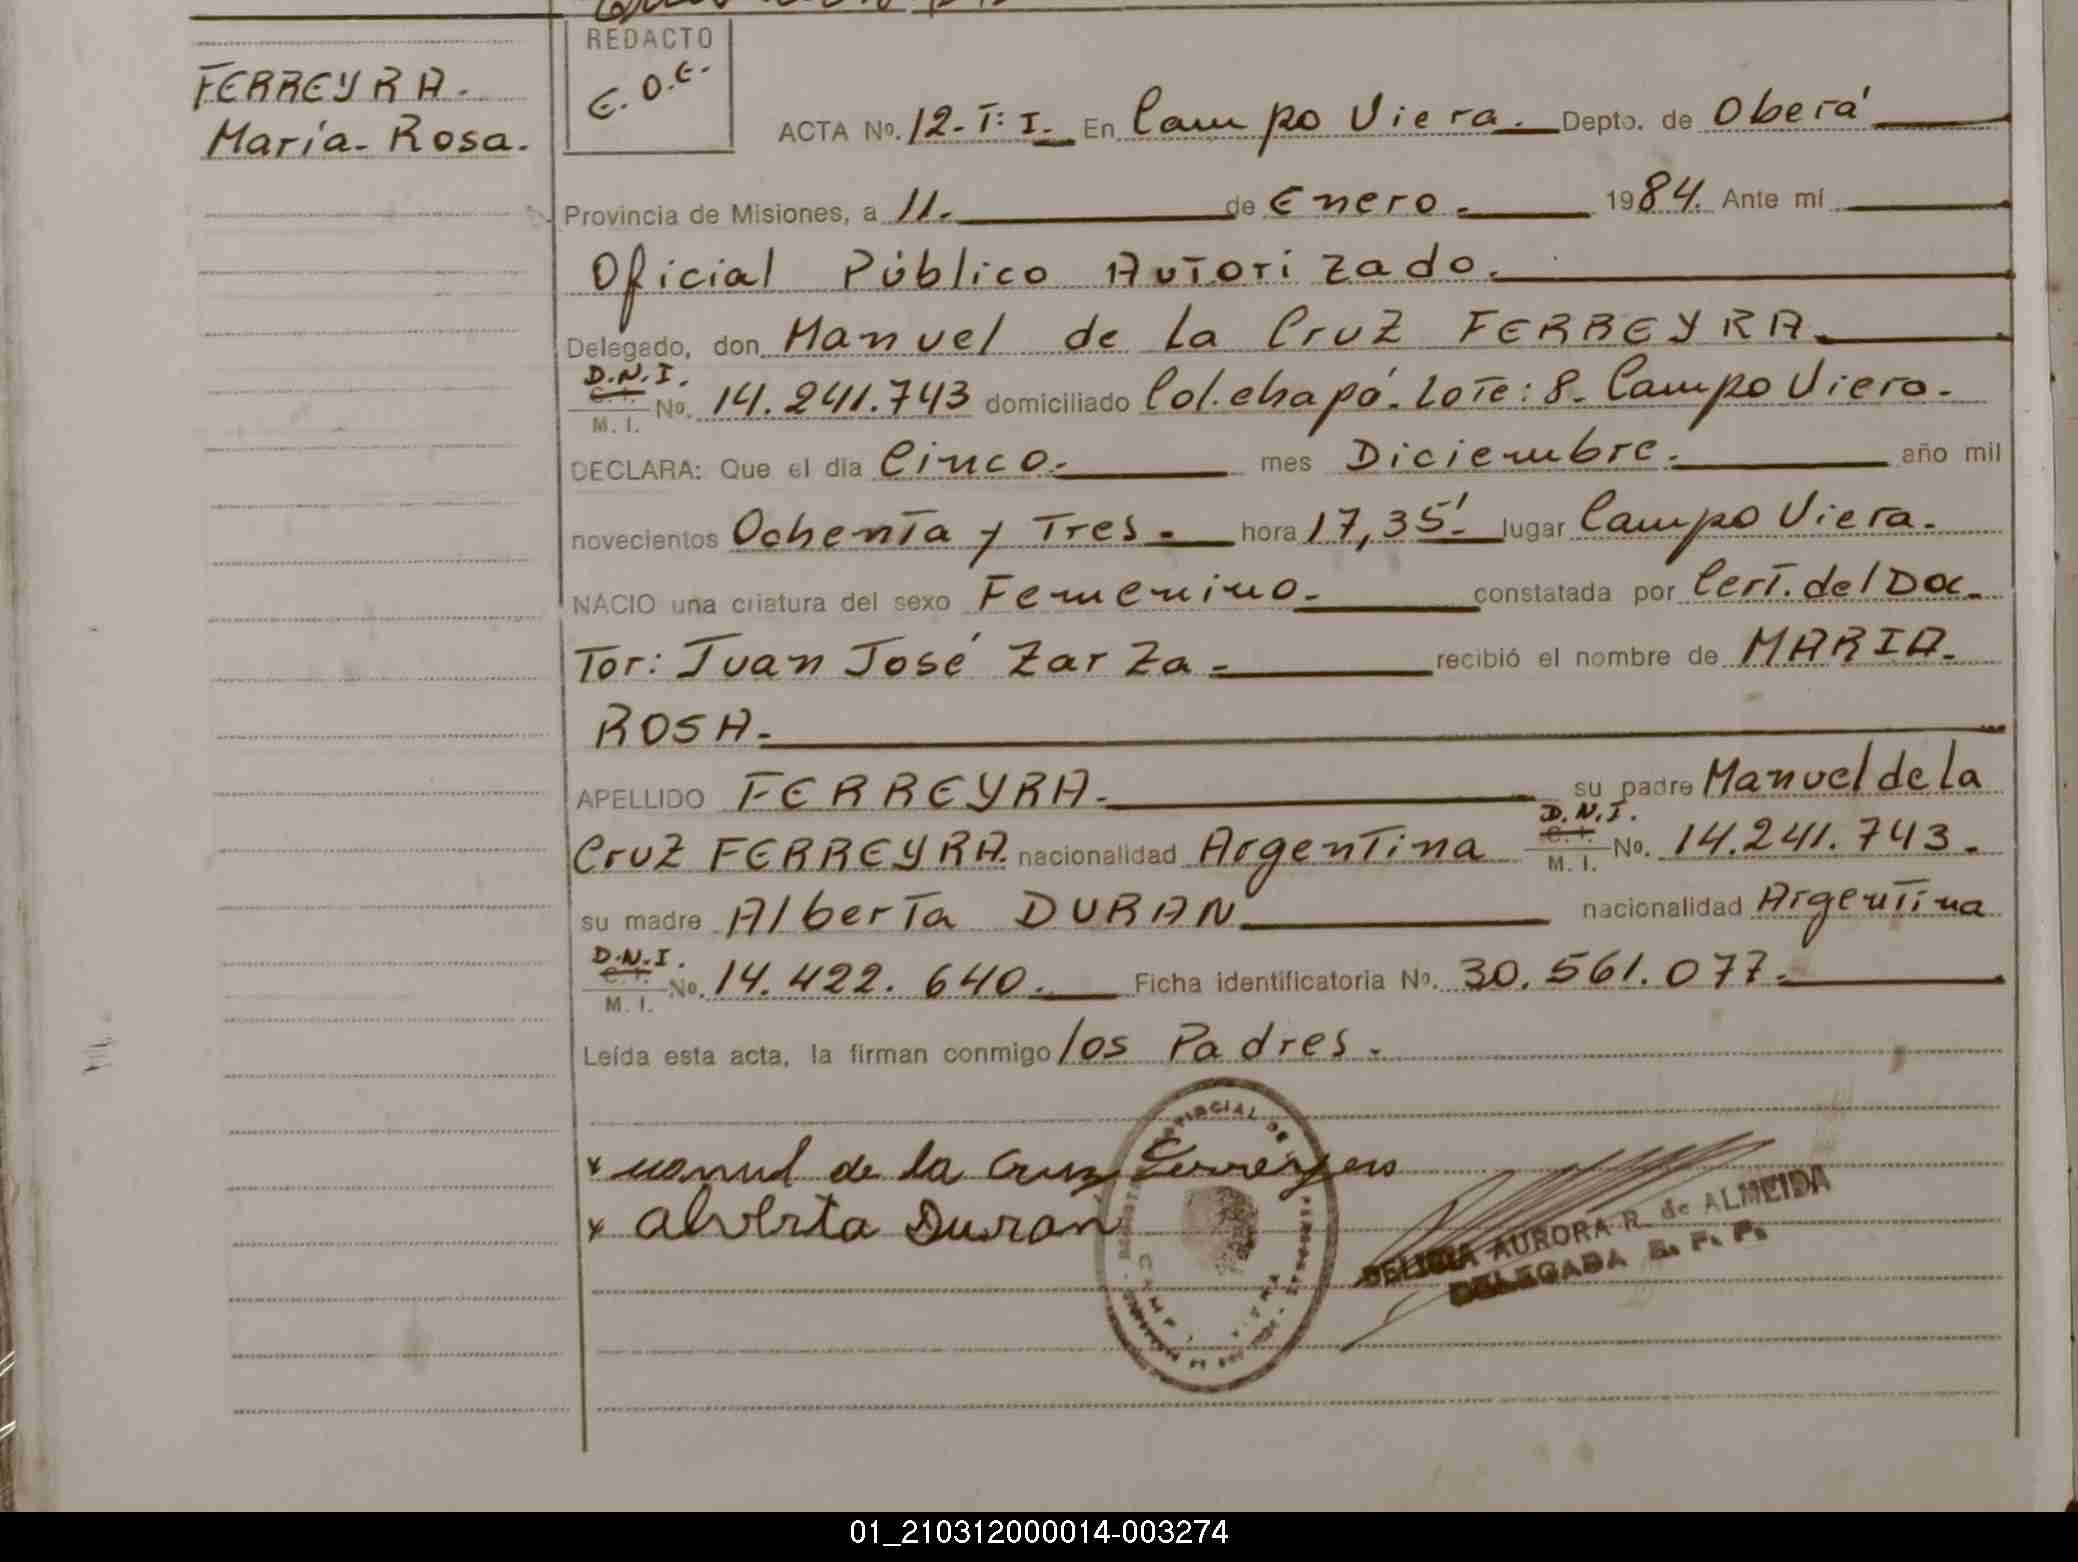 FERREYRA.
María- Rosa.
REDACTO
E. O. E.
ACTA No. 12-T: I. En Campo Viera. Depto. de Oberá
Provincia de Misiones, a 11. de Enero. 1984. Ante mí
Oficial Público Autorizado.
Delegado, don Manuel de La Cruz FERREYRA.
D.N.I.
C. I.
M. I.
No. 14.241.743 domiciliado Col. chapá. Lote: 8. Campo Viera.
DECLARA: Que el día Cinco. mes Diciembre. año mil
novecientos Ochenta y Tres. hora 17,35'. lugar Campo Viera.
NACIO una criatura del sexo Femenino. constatada por Cert. del Doc-
Tor: Juan José Zarza. recibió el nombre de MARIA.
ROSA.
APELLIDO FERREYRA. su padre Manuel de La
D.N.I.
C. I.
M. I.
Cruz FERREYRA. nacionalidad Argentina No. 14.241.743.
su madre Alberta DURAN nacionalidad Argentina
D.N.I.
C. I.
M. I.
No. 14.422.640. Ficha identificatoria No. 30.561.077.
Leída esta acta, la firman conmigo los Padres.
x manuel de la Cruz Ferreyra
x alverta Duran
DELICIA AURORA R. de ALMEIDA
DELEGADA
01_210312000014-003274